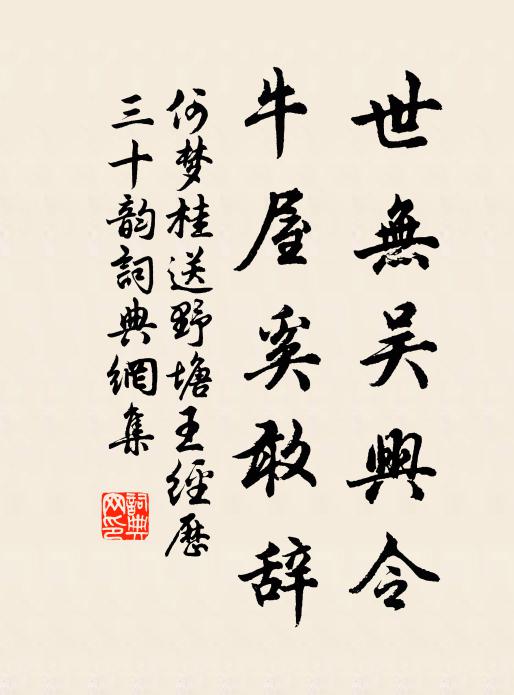 世無吴興令
牛屋奚敢辞
何梦桂送野塘王經歷
三十韵詞典網集
詞典网印